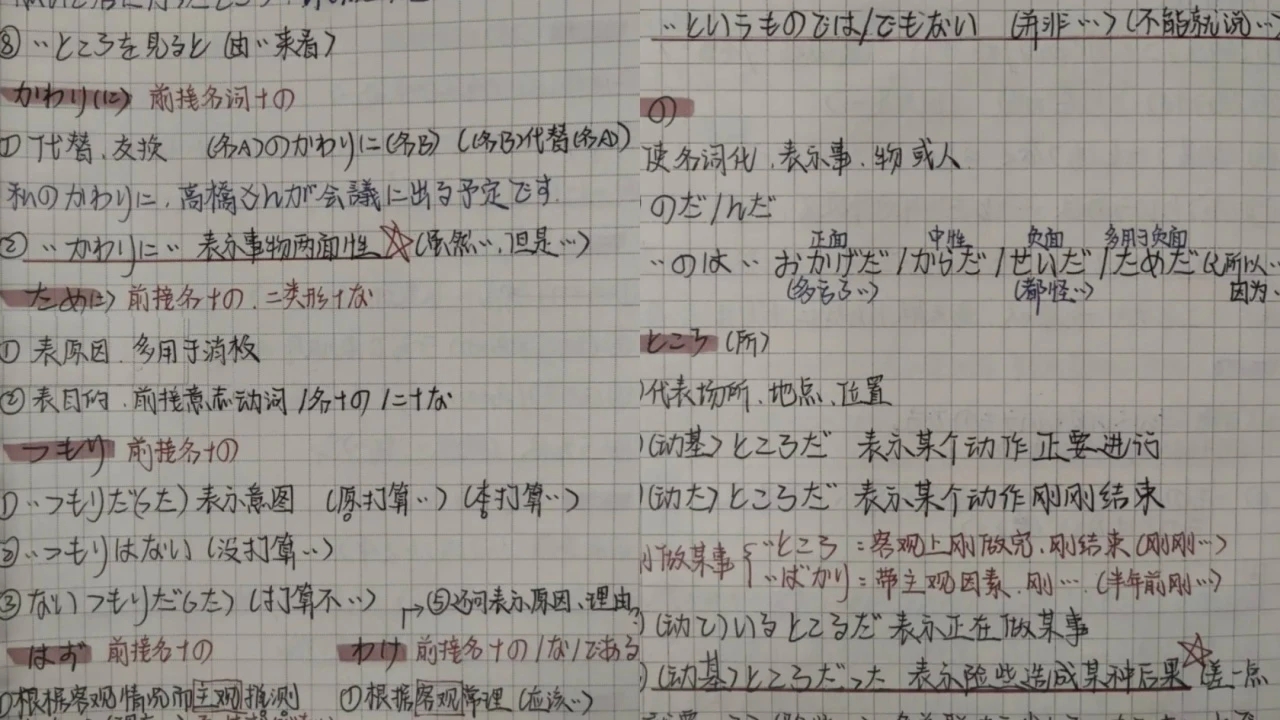 ⑧…ところを見ると(由…来看)
かわり(に) 前接名词+の
①代替、交换 (名A)のかわりに(名B) ((名B)代替(名A))
私のかわりに,高橋さんが会議に出る予定です.
②…かわりに… 表示事物两面性☆(虽然…,但是…)
ため(に) 前接名+の、二类形+な
① 表原因、多用于消极
②表目的、前接意志动词/名+の/二+な
つもり 前接名+の
①…つもりだ(った)表示意图 (原打算…)(本打算…)
②…つもりはない(没打算…)
③ないつもりだ(った)(打算不…)
→⑤还可表示原因、理由
はず 前接名+の
わけ 前接名+の/な/である
①根据客观情况而主观推测
①根据客观常理(应该…)
…というものでは/でもない (并非…)(不能就说…)
の
使名词化、表示事、物或人
のだ/んだ
正面 中性 负面 多用于负面
…のは…おかげだ/からだ/せいだ/ためだ(之所以…
(多亏了…) (都怪…) 因为…
ところ(所)
)代表场所、地点、位置
)(动基)ところだ 表示某个动作正要进行
)(动た)ところだ 表示某个动作刚刚结束
刚做某事{…ところ:客观上刚做完、刚结束(刚刚…)
…ばかり:带主观因素、刚…(半年前刚…)
)(动て)いるところだ 表示正在做某事
)(动基)ところだった 表示险些造成某种后果☆(差一点